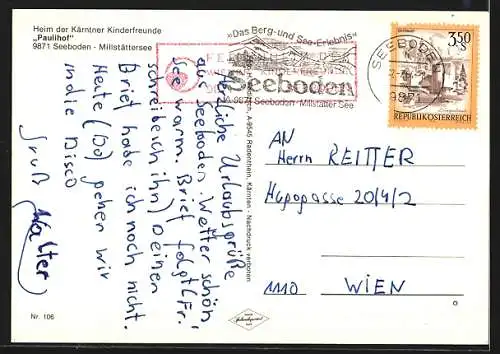 Heim der Kärntner Kinderfreunde
„Paulihof"
9871 Seeboden - Millstättersee
»Das Berg-und See-Erlebnis«
Seeboden
A 9871 Seeboden · Millstätter See
SEEBODEN
9871
350
S
REPUBLIK ÖSTERREICH
Herzliche Urlaubsgrüße
aus Seeboden. Wetter schön,
See warm. Brief folgt (Fr.
schreibe ich ihn) Deinen
Brief habe ich noch nicht.
Heute (Do) gehen wir
in die Disco
Gruß Walter
A-9545 Radenthein, Kärnten - Nachdruck verboten
AN
Herrn REITTER
Hugogasse 20/4/2
1110 WIEN
Nr. 106